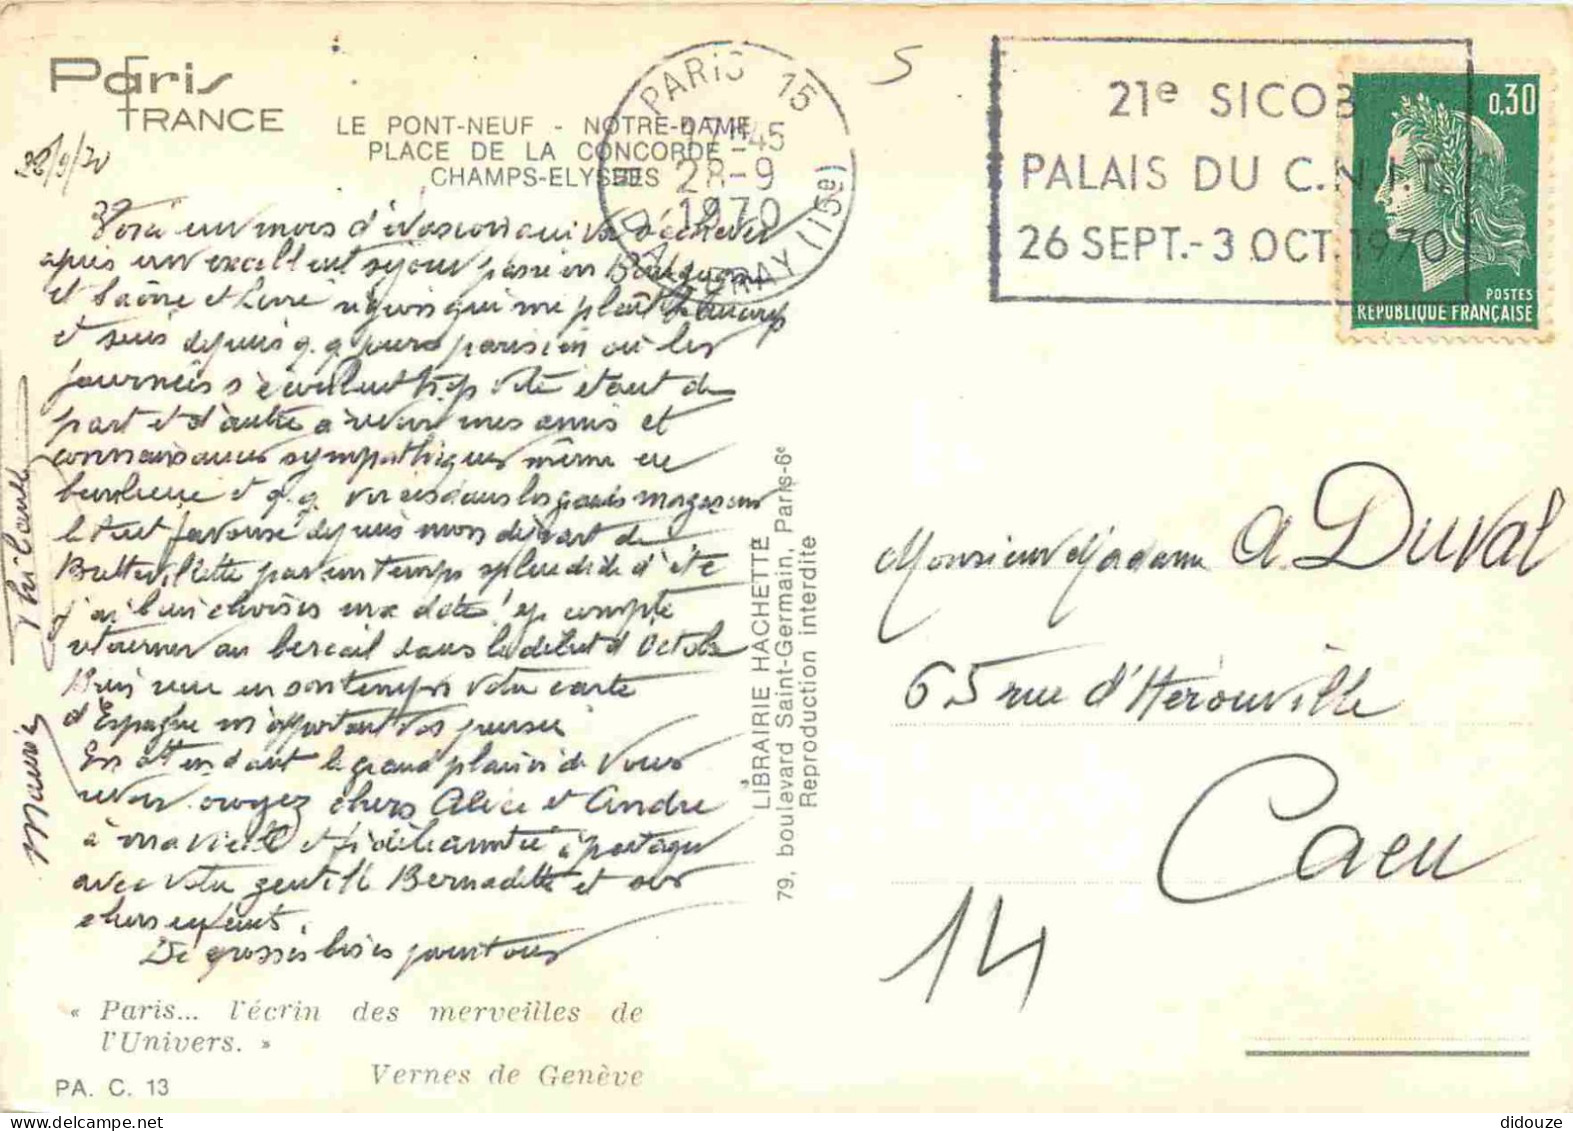 Paris
FRANCE
LE PONT-NEUF - NOTRE-DAME
PLACE DE LA CONCORDE
CHAMPS-ELYSEES
28/9/70
Voici un mois d'évasion qui va s'achever
après un excellent séjour passé en Bourgogne
et Saône et Loire région qui me plaît beaucoup
et suis depuis q.q jours parisien où les
journées s'écoulent trop vite étant de
part et d'autre à revoir mes amis et
connaissances sympathiques même en
banlieue et q.q virées dans les grands magasins
le tout favorisé depuis mon départ de
Brettevillette par un temps splendide d'été
j'ai bien choisi ma date! Je compte
retourner au bercail dans le début d'Octobre
Bien reçu en son temps votre carte
d'Espagne m'apportant vos pensées
En attendant le grand plaisir de vous
revoir croyez chers Alice et André
à ma vieille et fidèle amitié à partager
avec votre gentille Bernadette et vos
chers enfants.
De grosses bises pour tous
Maurice Thibault
« Paris... l'écrin des merveilles de
l'Univers. »
Vernes de Genève
PA. C. 13
LIBRAIRIE HACHETTE
79, boulevard Saint-Germain, Paris-6e
Reproduction interdite
PARIS 15
17H45
28-9
1970
(15e)
5
21e SICOB
PALAIS DU C.N.I.T.
26 SEPT.-3 OCT. 1970
0,30
POSTES
REPUBLIQUE FRANÇAISE
Monsieur Madame A Duval
65 rue d'Hérouville
Caen
14
didouze